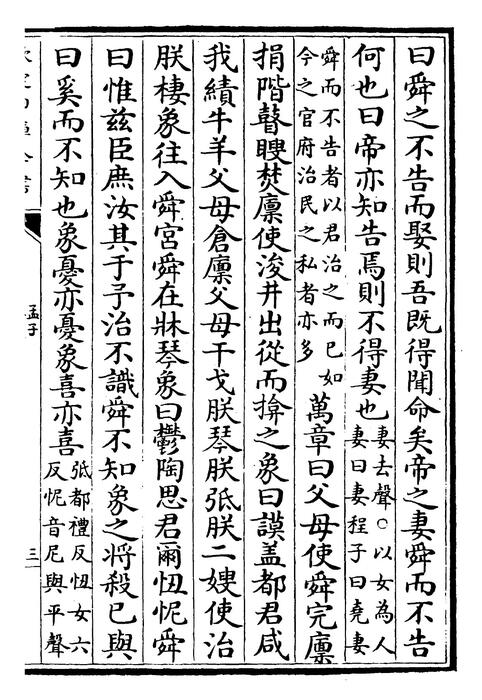 曰舜之不告而娶則吾既得聞命矣帝之妻舜而不告
何也曰帝亦知告焉則不得妻也妻去聲○以女為人妻曰妻程子曰堯妻
舜而不告者以君治之而已如今之官府治民之私者亦多萬章曰父母使舜完廩
捐階瞽瞍焚廩使浚井出從而揜之象曰謨蓋都君咸
我績牛羊父母倉廩父母干戈朕琴朕弤朕二嫂使治
朕棲象往入舜宮舜在牀琴象曰鬱陶思君爾忸怩舜
曰惟茲臣庶汝其于予治不識舜不知象之將殺已與
曰奚而不知也象憂亦憂象喜亦喜弤都禮反忸女六反怩音尼與平聲
孟子
三